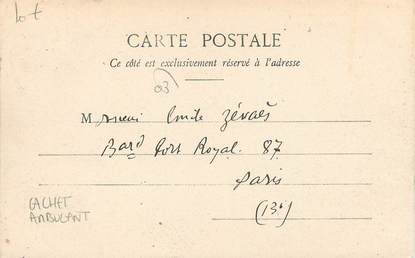 Lot
CARTE POSTALE
Ce côté est exclusivement réservé à l'adresse
03
Monsieur Emile Zévaès
Bard Port Royal. 87
Paris
(13e)
CACHET
AMBULANT